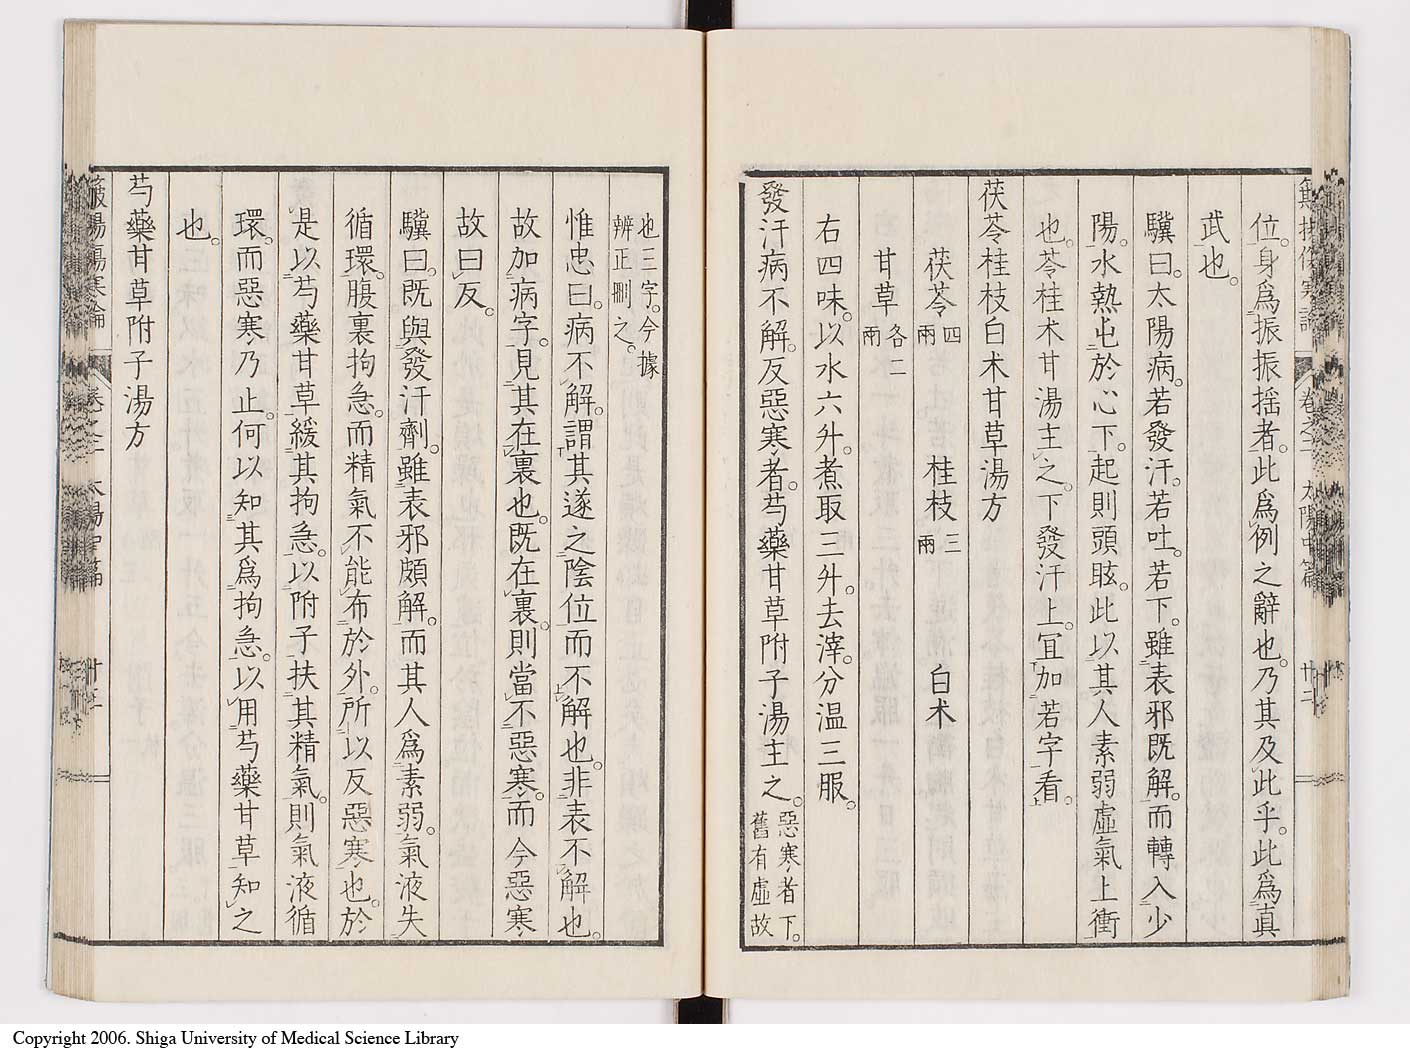 位。身爲振振揺者。此爲例之辭也。乃其及此乎。此爲眞
武也。
驥曰。太陽病。若發汗。若吐。若下。雖表邪既解。而轉入少
陽。水熱屯於心下。起則頭眩。此以其人素弱虛氣上衝
也。苓桂朮甘湯主之。下發汗上宜加若字看。
茯苓桂枝白朮甘草湯方
茯苓四兩 桂枝三兩 白朮
甘草各二兩
右四味。以水六升。煮取三升。去滓。分温三服。
發汗病不解。反惡寒者。芍藥甘草附子湯主之。惡寒者下。
舊有虛故
也三字。今據
辨正刪之。
惟忠曰。病不解。謂其遂之陰位而不解也。非表不解也。
故加病字。見其在裏也。既在裏。則當不惡寒。而今惡寒
故曰反。
驥曰。既與發汗劑。雖表邪頗解。而其人爲素弱。氣液失
循環。腹裏拘急。而精氣不能布於外。所以反惡寒也。於
是以芍藥甘草緩其拘急。以附子扶其精氣。則氣液循
環。而惡寒乃止。何以知其爲拘急。以用芍藥甘草知之
也。
芍藥甘草附子湯方
Copyright 2006. Shiga University of Medical Science Library